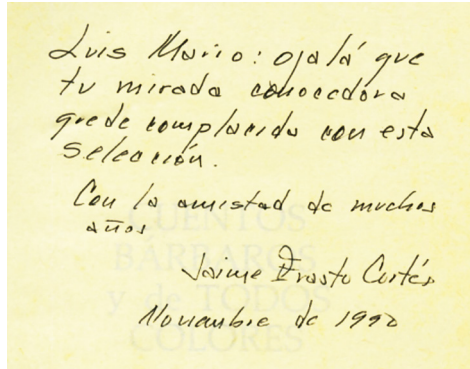 Luis Mario: ojalá que
tu mirada conocedora
quede complacida con esta
selección.
Con la amistad de muchos
años
Jaime Erasto Cortés
Noviembre de 1990
CUENTOS
BÁRBAROS
y de TODOS
COLORES